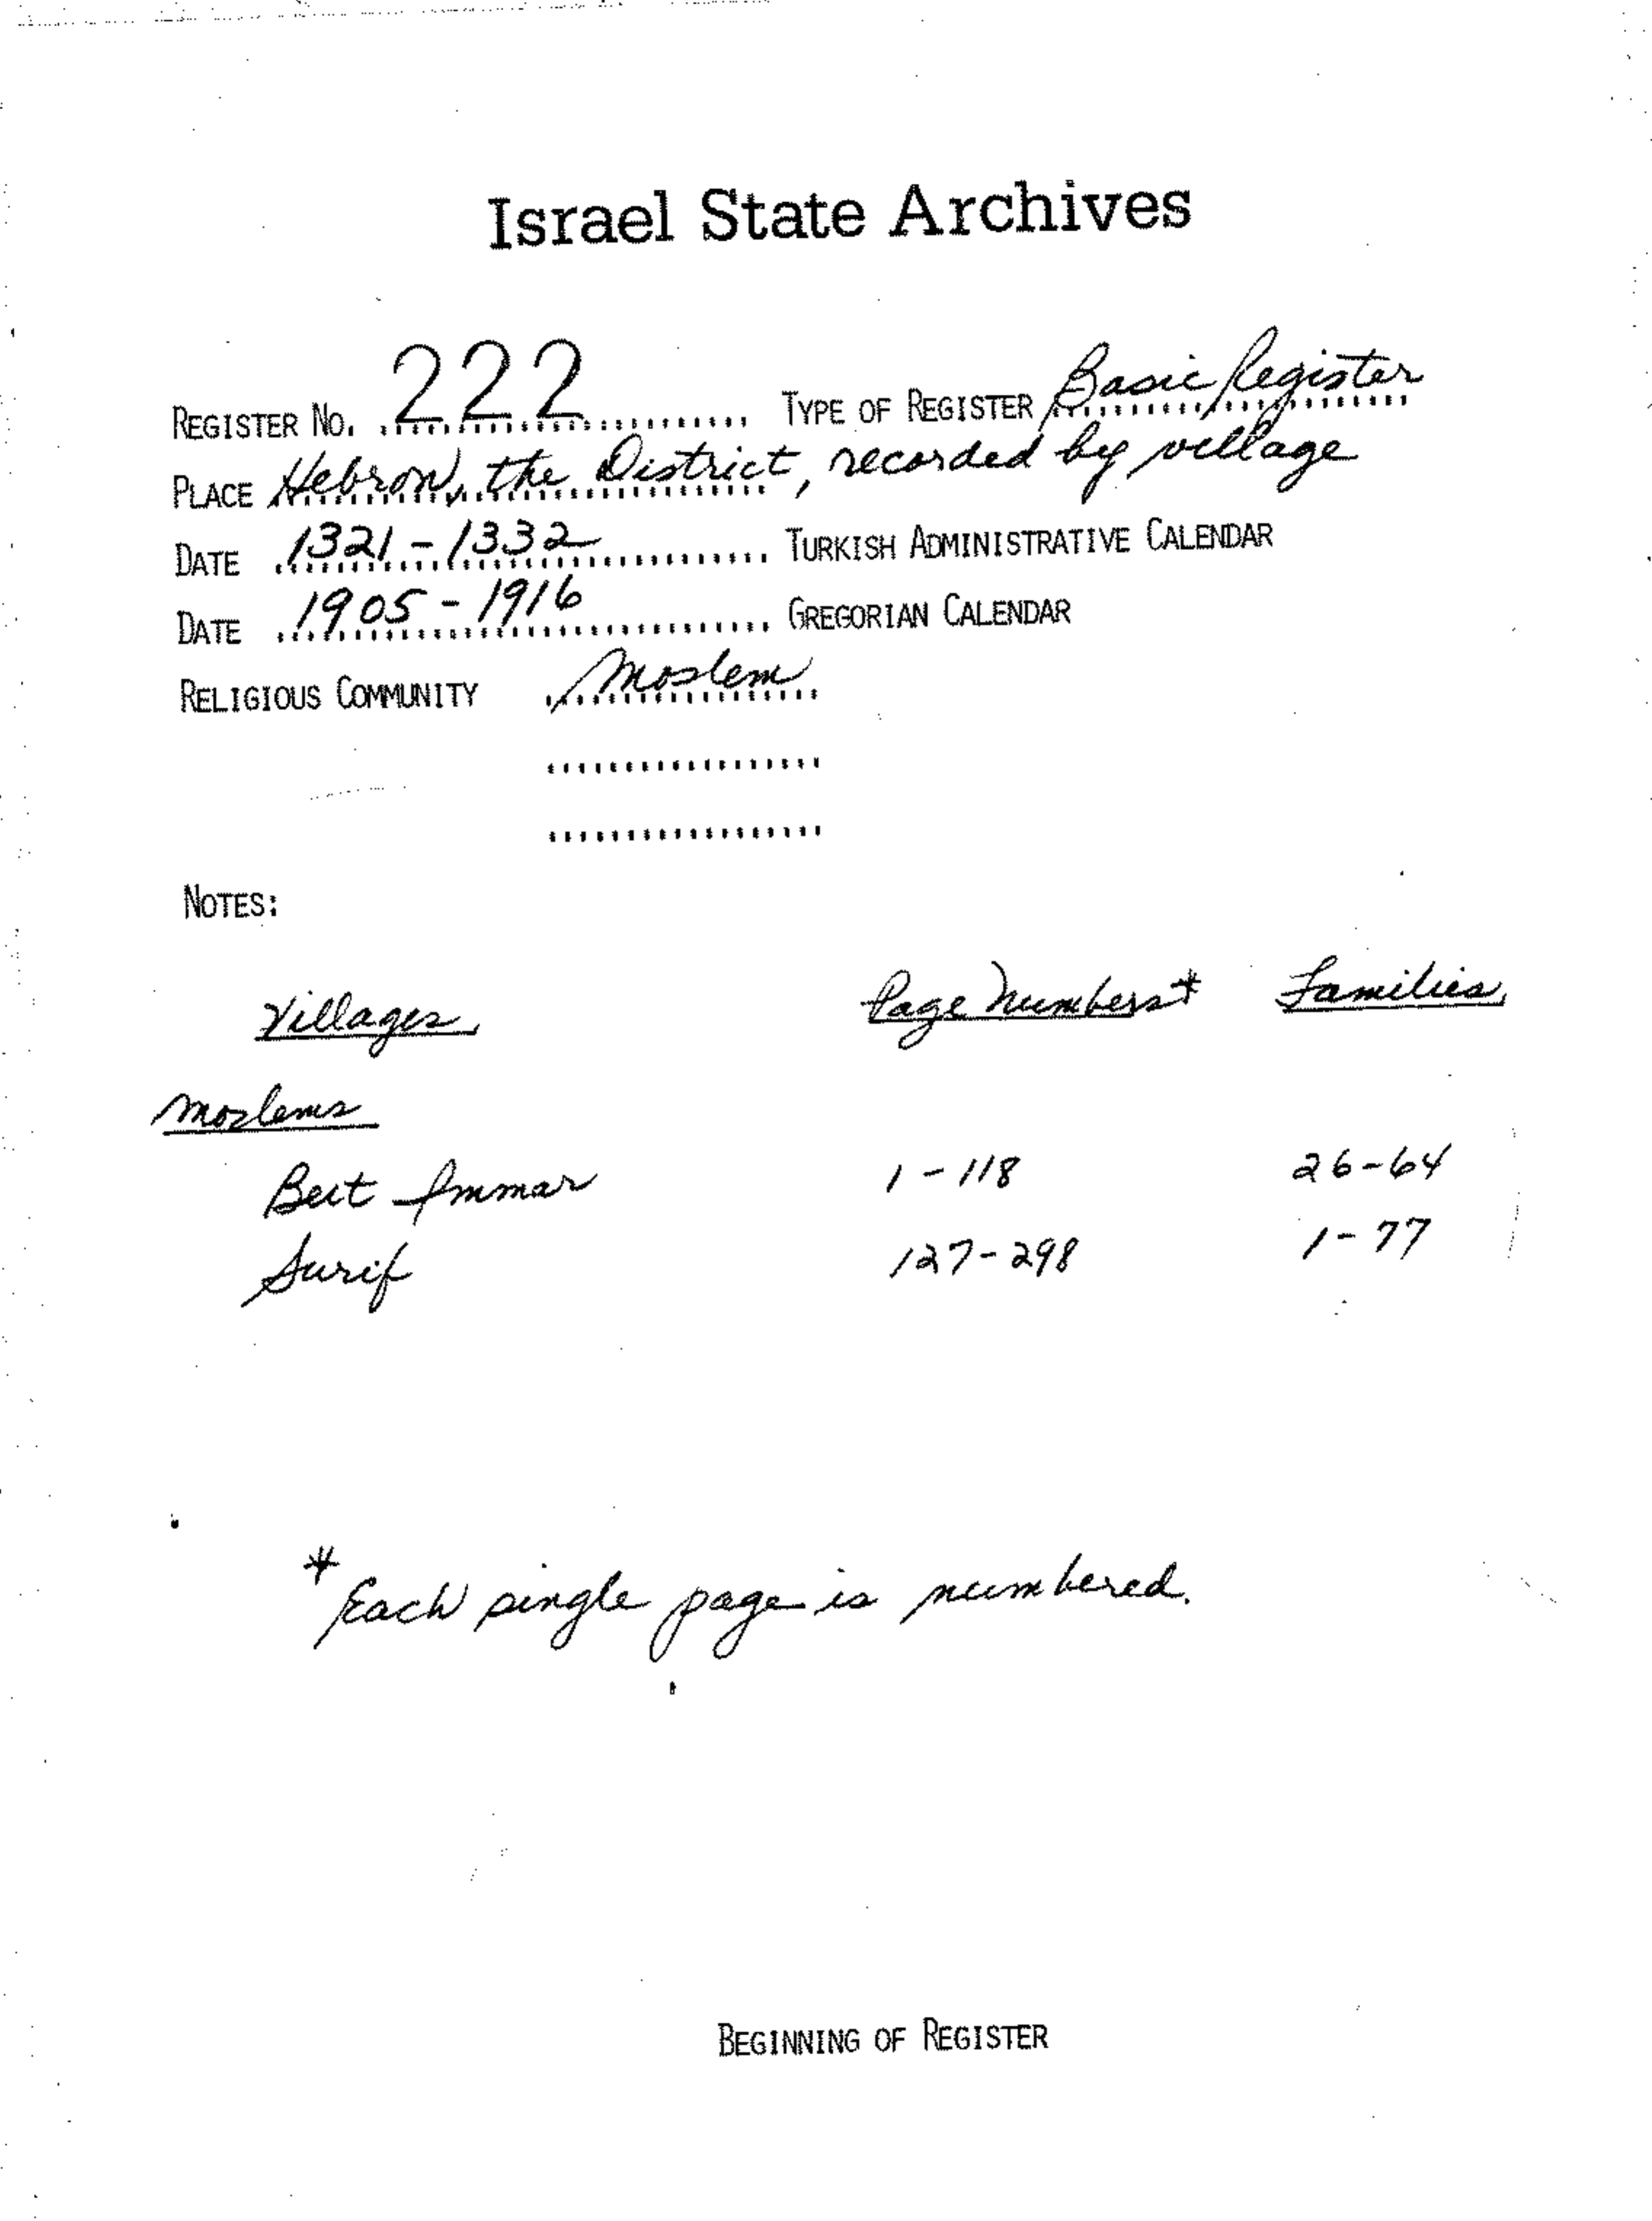 Israel State Archives
REGISTER NO. 222 TYPE OF REGISTER Basic Register
PLACE Hebron, the District, recorded by village
DATE 1321-1332 TURKISH ADMINISTRATIVE CALENDAR
DATE 1905-1916 GREGORIAN CALENDAR
RELIGIOUS COMMUNITY Moslem
NOTES:
Villages Page Numbers* Families
Moslems
Beit Ummar 1-118 26-64
Surif 127-298 1-77
* Each single page is numbered.
BEGINNING OF REGISTER